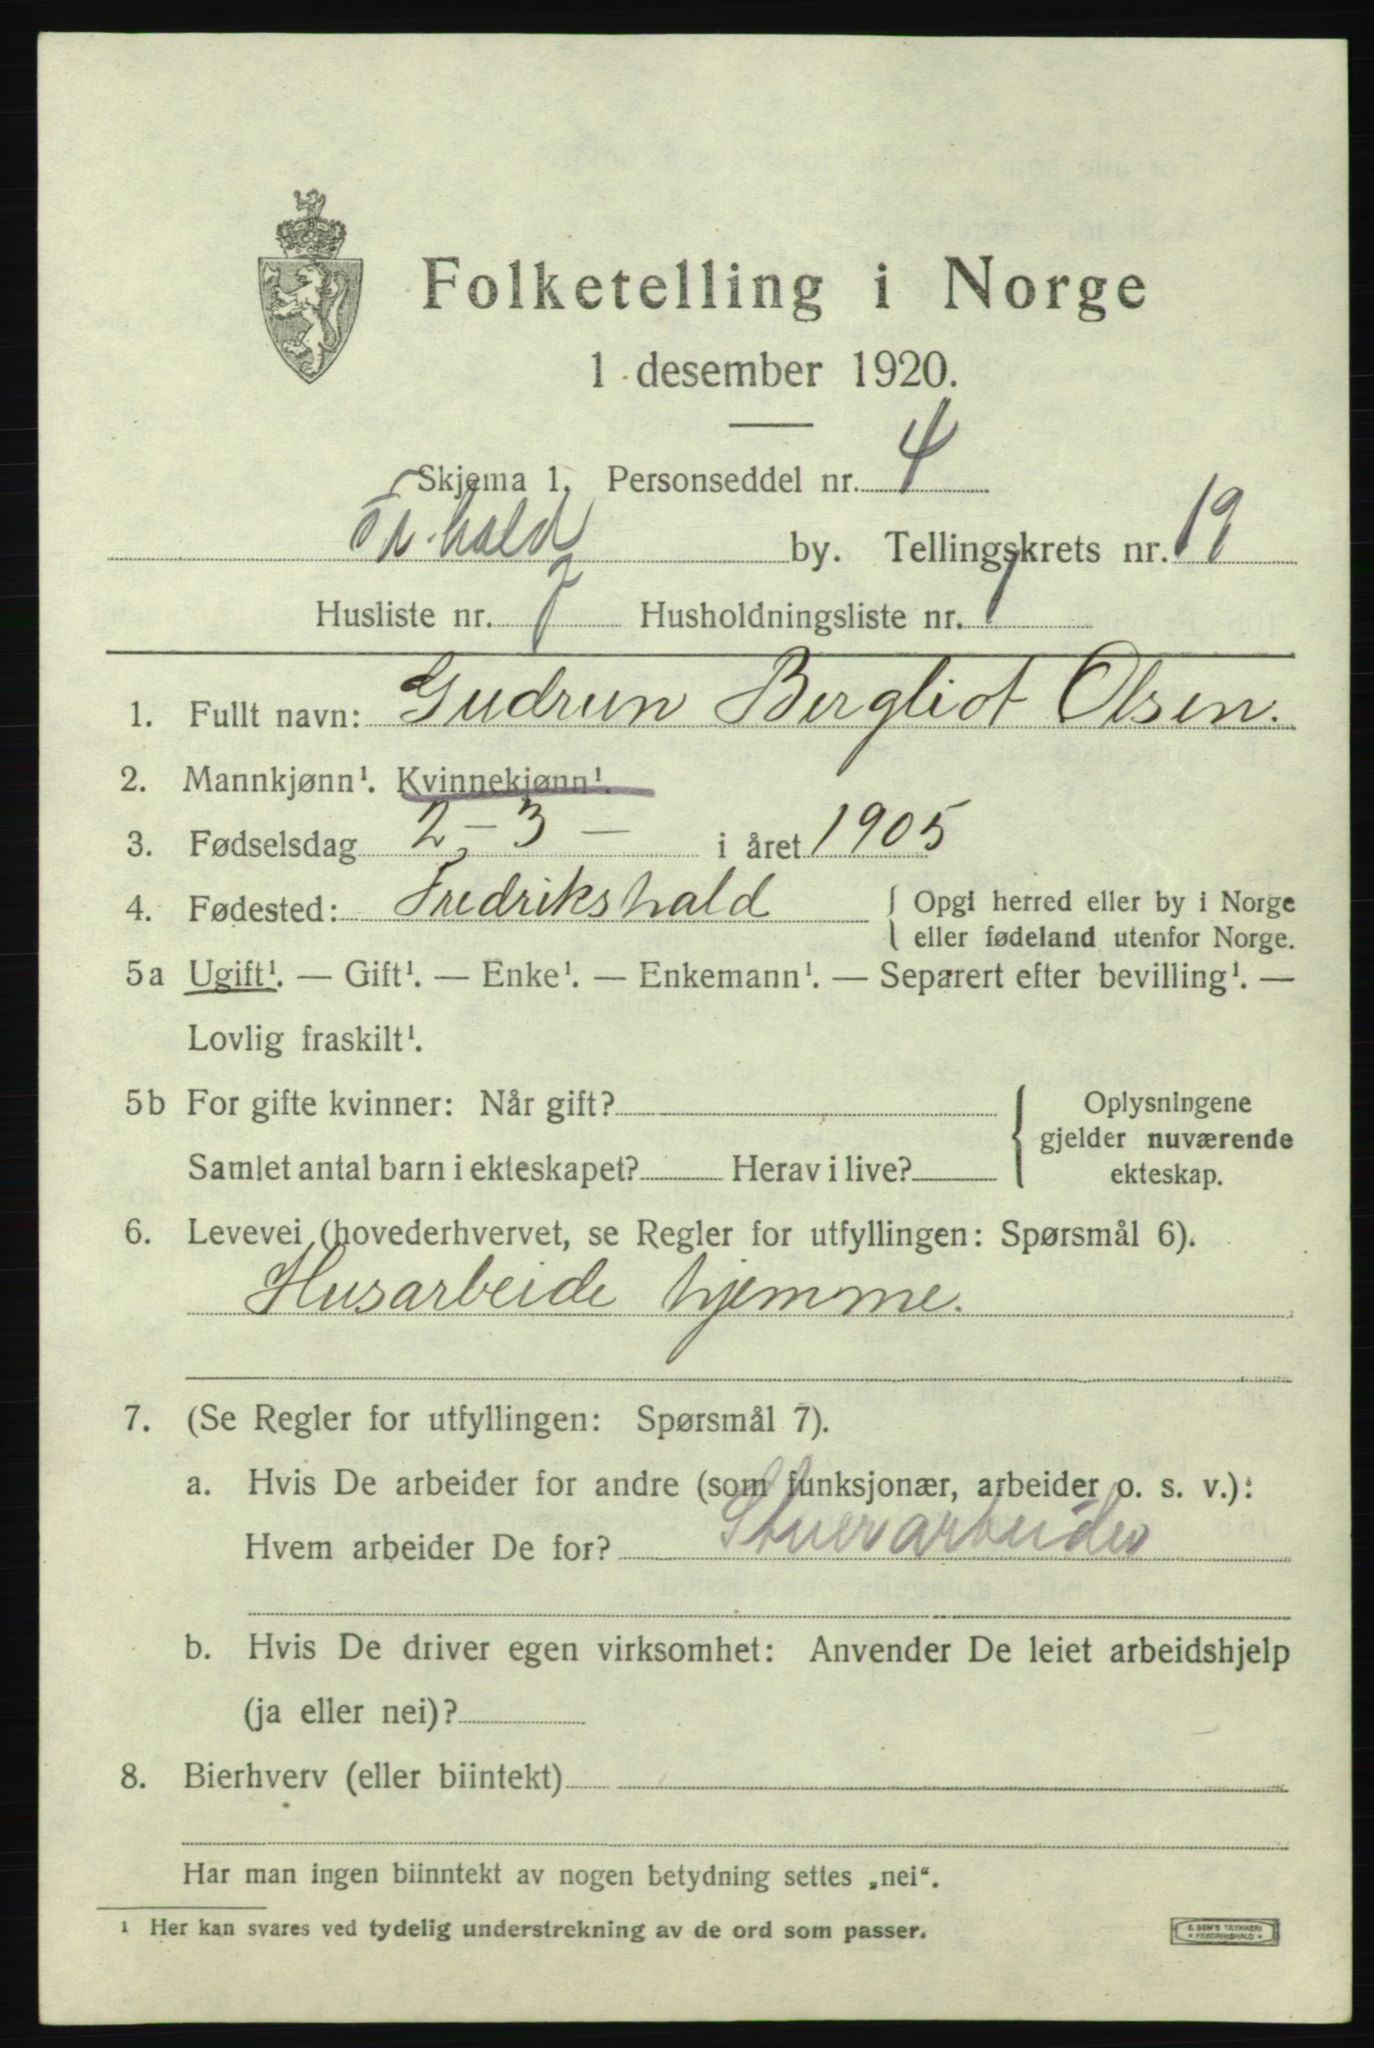 Folketelling i Norge
1 desember 1920.
Skjema 1. Personseddel nr. 4
Fr.hald by. Tellingskrets nr. 19
Husliste nr. 7 Husholdningsliste nr. 1
1. Fullt navn: Gudrun Bergliot Olsen.
2. Mannkjønn¹. Kvinnekjønn¹.
3. Fødselsdag 2-3- i året 1905
4. Fødested: Fredrikshald { Opgi herred eller by i Norge
eller fødeland utenfor Norge.
5a Ugift¹. — Gift¹. — Enke¹. — Enkemann¹. — Separert efter bevilling¹. —
Lovlig fraskilt¹.
5b For gifte kvinner: Når gift? Oplysningene
gjelder nuværende
Samlet antal barn i ekteskapet? Herav i live? ekteskap.
6. Levevei (hovederhvervet, se Regler for utfyllingen: Spørsmål 6).
Husarbeide hjemme.
7. (Se Regler for utfyllingen: Spørsmål 7).
a. Hvis De arbeider for andre (som funksjonær, arbeider o. s. v.):
Hvem arbeider De for? Stuerarbeider
b. Hvis De driver egen virksomhet: Anvender De leiet arbeidshjelp
(ja eller nei)?
8. Bierhverv (eller biintekt)
Har man ingen biinntekt av nogen betydning settes „nei“.
¹ Her kan svares ved tydelig understrekning av de ord som passer.
E. SEM'S TRYKKERI
FREDRIKSHALD